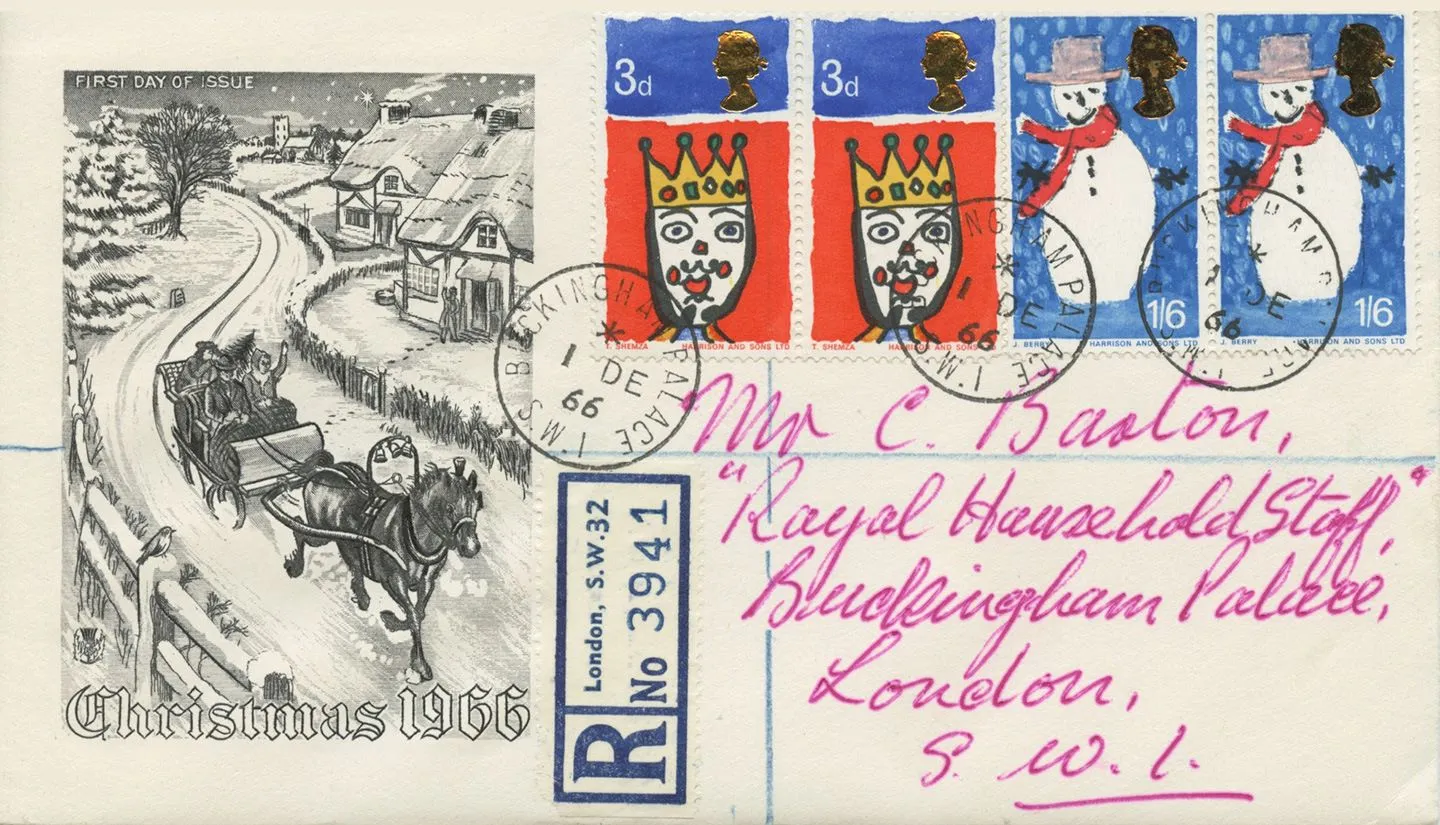 FIRST DAY OF ISSUE
3d
T. SHEMZA HARRISON AND SONS LTD
3d
T. SHEMZA HARRISON AND SONS
1/6
J. BERRY HARRISON AND SONS LTD
1/6
J. BERRY HARRISON AND SONS LTD
BUCKINGHAM PALACE S.W.1.
1 DE
66
BUCKINGHAM PALACE S.W.1.
1 DE
66
BUCKINGHAM PALACE S.W.1.
1 DE
66
Mr C. Barton,
"Royal Household Staff,"
Buckingham Palace,
London,
S. W. 1.
R
London, S.W.32
No 3941
Christmas 1966